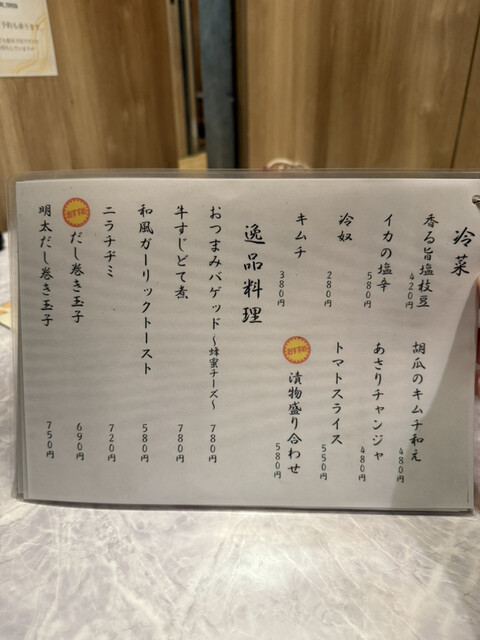 冷菜
香る旨塩枝豆
420円
胡瓜のキムチ和え
480円
イカの塩辛
580円
あさりチャンジャ
480円
冷奴
280円
トマトスライス
550円
キムチ
380円
おすすめ
漬物盛り合わせ
580円
逸品料理
おつまみバゲッド～蜂蜜チーズ～
780円
牛すじどて煮
780円
和風ガーリックトースト
580円
ニラチヂミ
720円
おすすめ
だし巻き玉子
690円
明太だし巻き玉子
750円